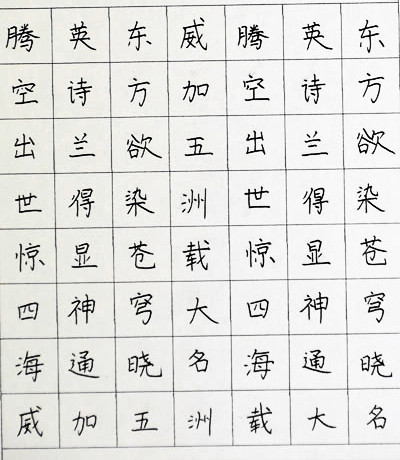 腾英东威腾英东
空诗方加空诗方
出兰欲五出兰欲
世得染洲世得染
惊显苍载惊显苍
四神穹大四神穹
海通晓名海通晓
威加五洲载大名